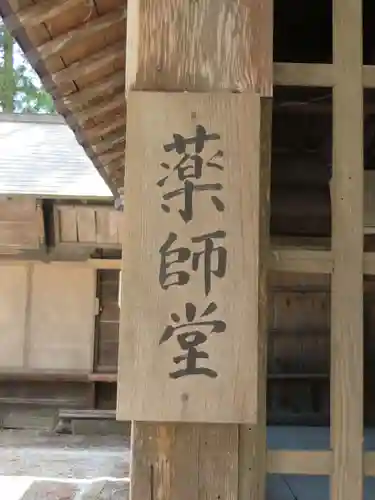 薬師堂